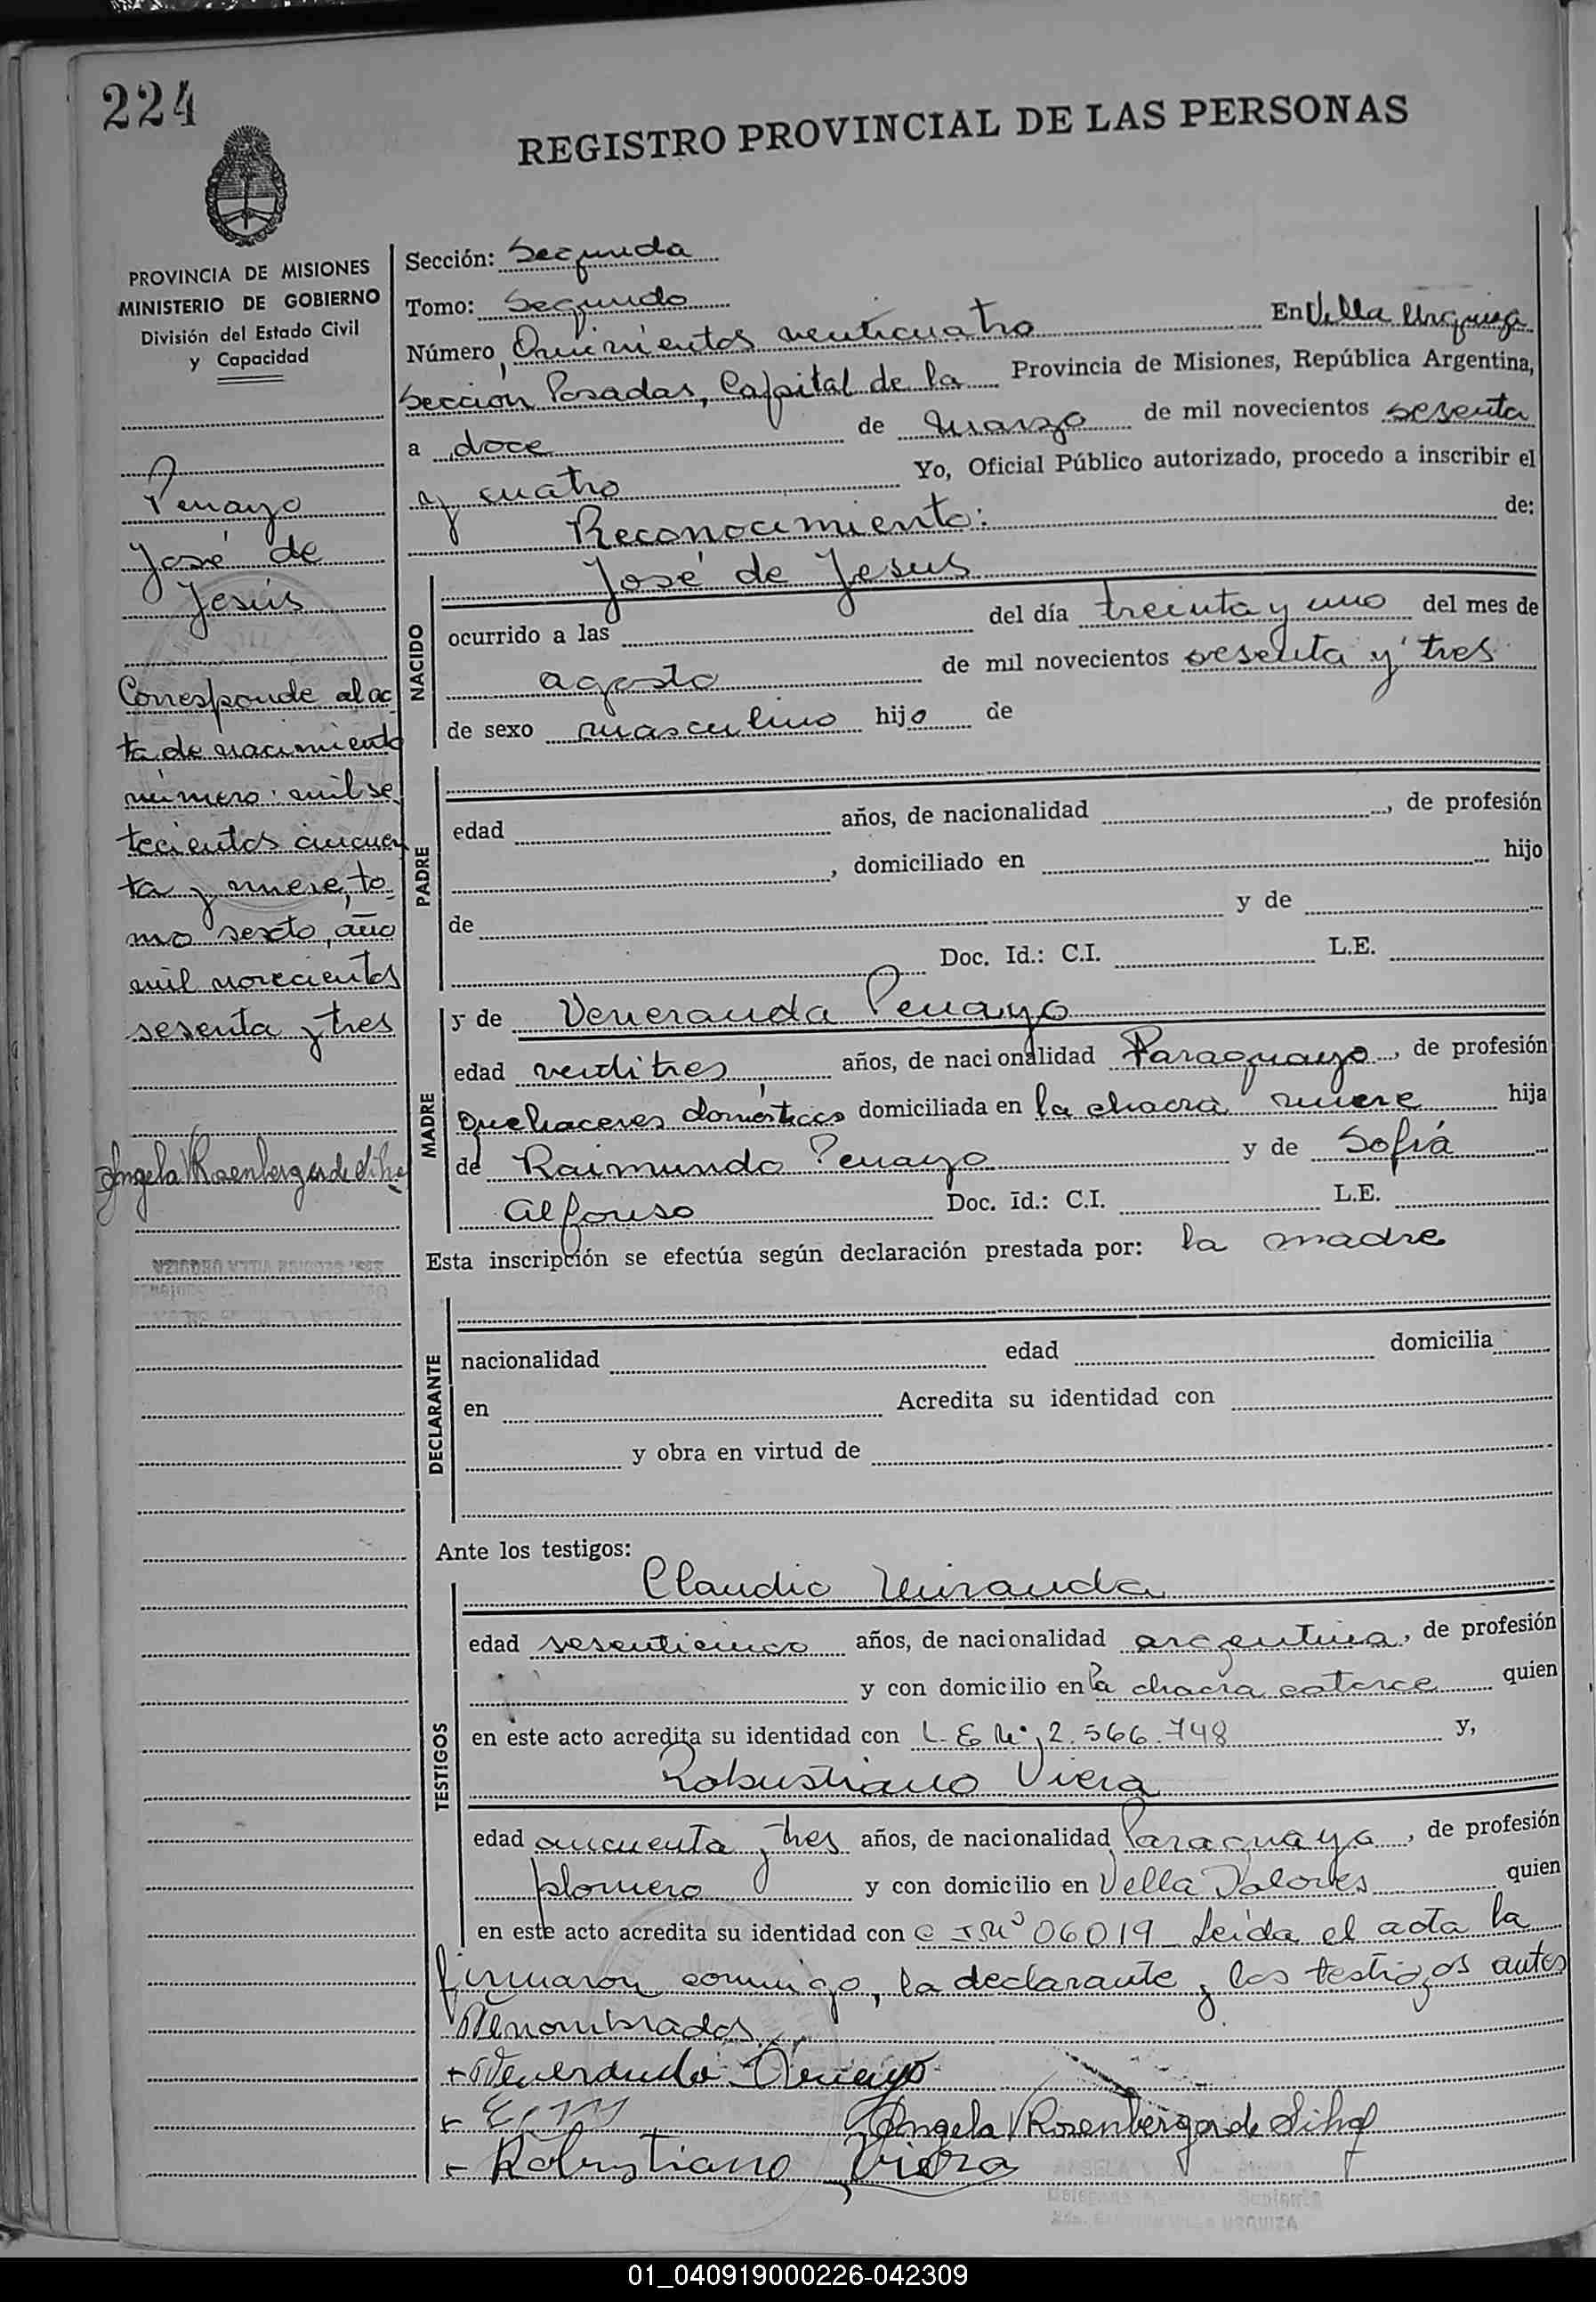 224
REGISTRO PROVINCIAL DE LAS PERSONAS
PROVINCIA DE MISIONES
MINISTERIO DE GOBIERNO
División del Estado Civil
y Capacidad
Penayo
José de
Jesús
Corresponde al ac
ta de nacimiento
número mil se
tecientos cincuen
ta y nueve, to
mo sexto, año
mil novecientos
sesenta y tres
Angela V Rosenberger de
Sección: Segunda
Tomo: Segundo
Número Quinientos veinticuatro En Villa Urquiza
Sección Posadas, Capital de la Provincia de Misiones, República Argentina,
a doce de marzo de mil novecientos sesenta
y cuatro Yo, Oficial Público autorizado, procedo a inscribir el
Reconocimiento: de:
José de Jesus
NACIDO
ocurrido a las del día treinta y uno del mes de
agosto de mil novecientos sesenta y tres
de sexo masculino hijo de
PADRE
edad años, de nacionalidad , de profesión
, domiciliado en hijo
de y de
Doc. Id.: C.I. L.E.
MADRE
y de Veneranda Penayo
edad veintitres años, de nacionalidad Paraguaya, de profesión
Quehaceres domésticos domiciliada en la chacra nueve hija
de Raimundo Penayo y de Sofía
Alfonso Doc. Id.: C.I. L.E.
Esta inscripción se efectúa según declaración prestada por: la madre
DECLARANTE
nacionalidad edad domicilia
en Acredita su identidad con
y obra en virtud de
Ante los testigos:
TESTIGOS
Claudio Miranda
edad sesenticinco años, de nacionalidad argentina, de profesión
y con domicilio en la chacra catorce quien
en este acto acredita su identidad con L.E Nº 2.566.748 y,
Robustiano Viera
edad cincuenta y tres años, de nacionalidad Paraguaya, de profesión
plomero y con domicilio en Villa Dolores quien
en este acto acredita su identidad con C I Nº 06019 Leída el acta la
firmaron conmigo, la declarante y los testigos antes
nombrados
Veneranda Penayo
Angela V Rosenberger de
Robustiano Viera
01_040919000226-042309